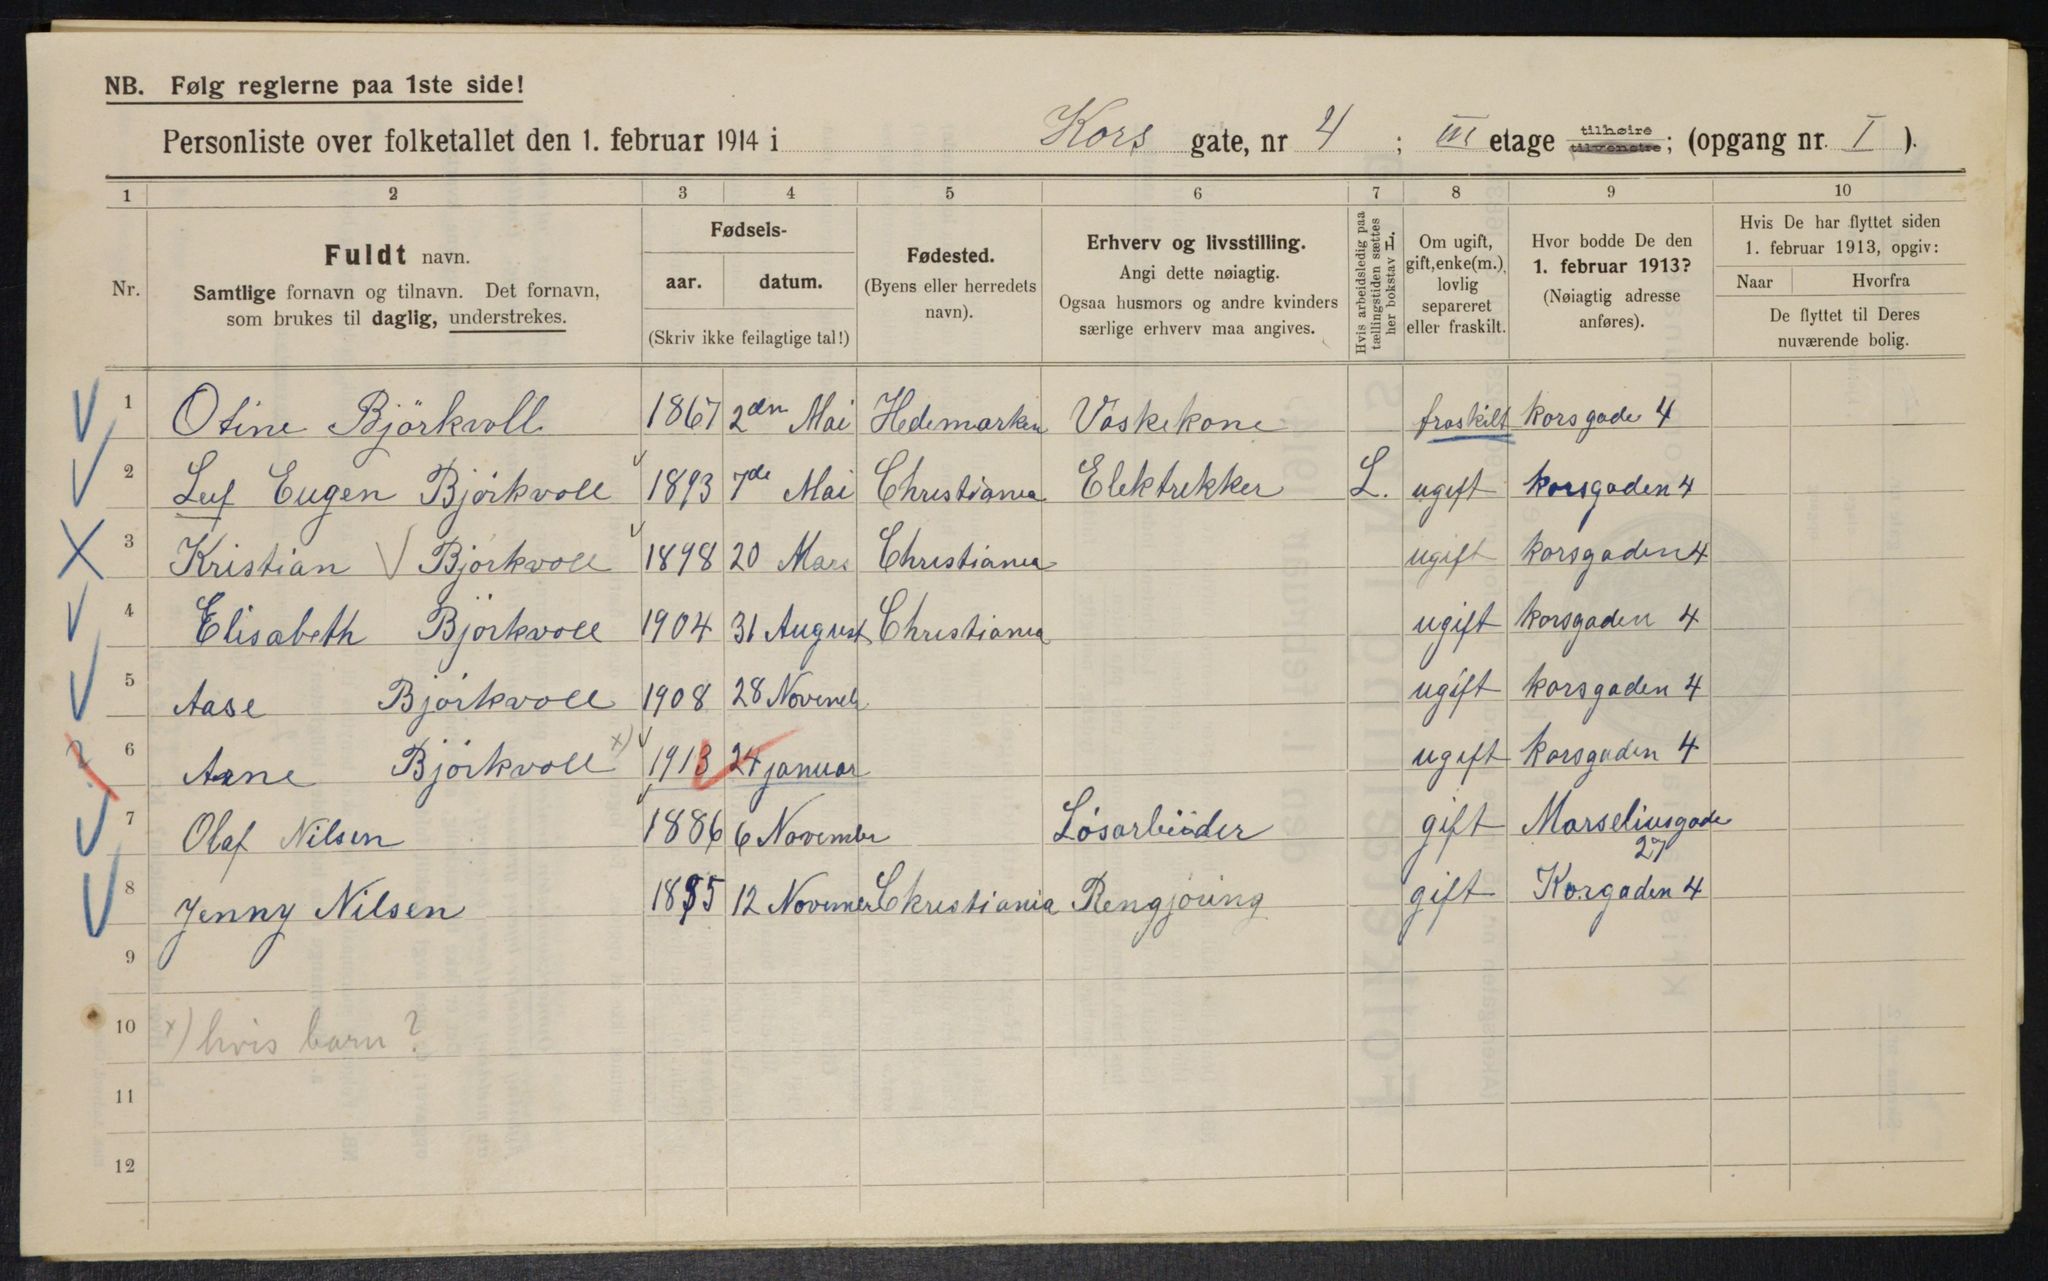 NB. Følg reglerne paa 1ste side!
Personliste over folketallet den 1. februar 1914 i Kors gate, nr 4 ; III etage tilhøire tilvenstre; (opgang nr. I ).
1 2 3 4 5 6 7 8 9 10
Nr.
Fuldt navn.
Samtlige fornavn og tilnavn. Det fornavn,
som brukes til daglig, understrekes.
Fødsels-
aar. datum.
(Skriv ikke feilagtige tal!)
Fødested.
(Byens eller herredets
navn).
Erhverv og livsstilling.
Angi dette nøiagtig.
Ogsaa husmors og andre kvinders
særlige erhverv maa angives.
Hvis arbeidsledig paa
tællingstiden sættes
her bokstav L.
Om ugift,
gift, enke(m.),
lovlig
separeret
eller fraskilt.
Hvor bodde De den
1. februar 1913?
(Nøiagtig adresse
anføres).
Hvis De har flyttet siden
1. februar 1913, opgiv:
Naar Hvorfra
De flyttet til Deres
nuværende bolig.
1 Otine Björkvoll 1867 2den Mai Hedemarken Vaskekone fraskilt korsgade 4
2 Leif Eugen Björkvoll 1893 7de Mai Christiania Elektrikker L. ugift korsgaden 4
3 Kristian Björkvoll 1898 20 Mars Christiania ugift korsgaden 4
4 Elisabeth Björkvoll 1904 31 August Christiania ugift korsgaden 4
5 Aase Björkvoll 1908 28 Novemb ugift korsgaden 4
6 Arne Björkvoll x) 1913 24 januar ugift korsgaden 4
7 Olaf Nilsen 1886 6 November Løsarbeider gift Marseliusgade
27
8 Jenny Nilsen 1885 12 November Christiania Rengjöring gift Korgaden 4
9
10 x) hvis barn?
11
12